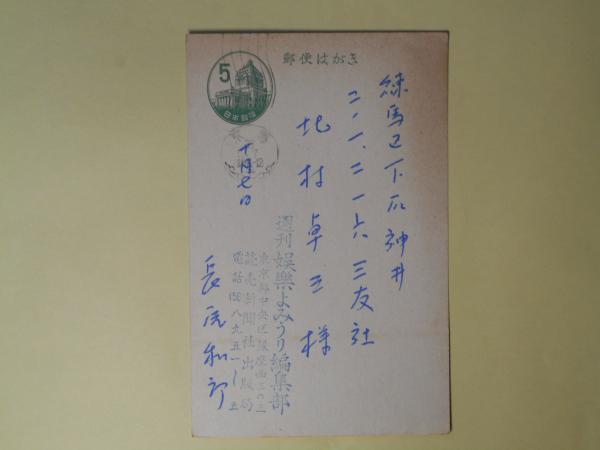 郵便はがき
5
日本郵便
練馬区下石神井
二ノ一、二一六 三友社
北村卓三様
十月七日
週刊娯楽よみうり編集部
東京都中央区銀座西三の一
読売新聞社出版局
長尾和郎